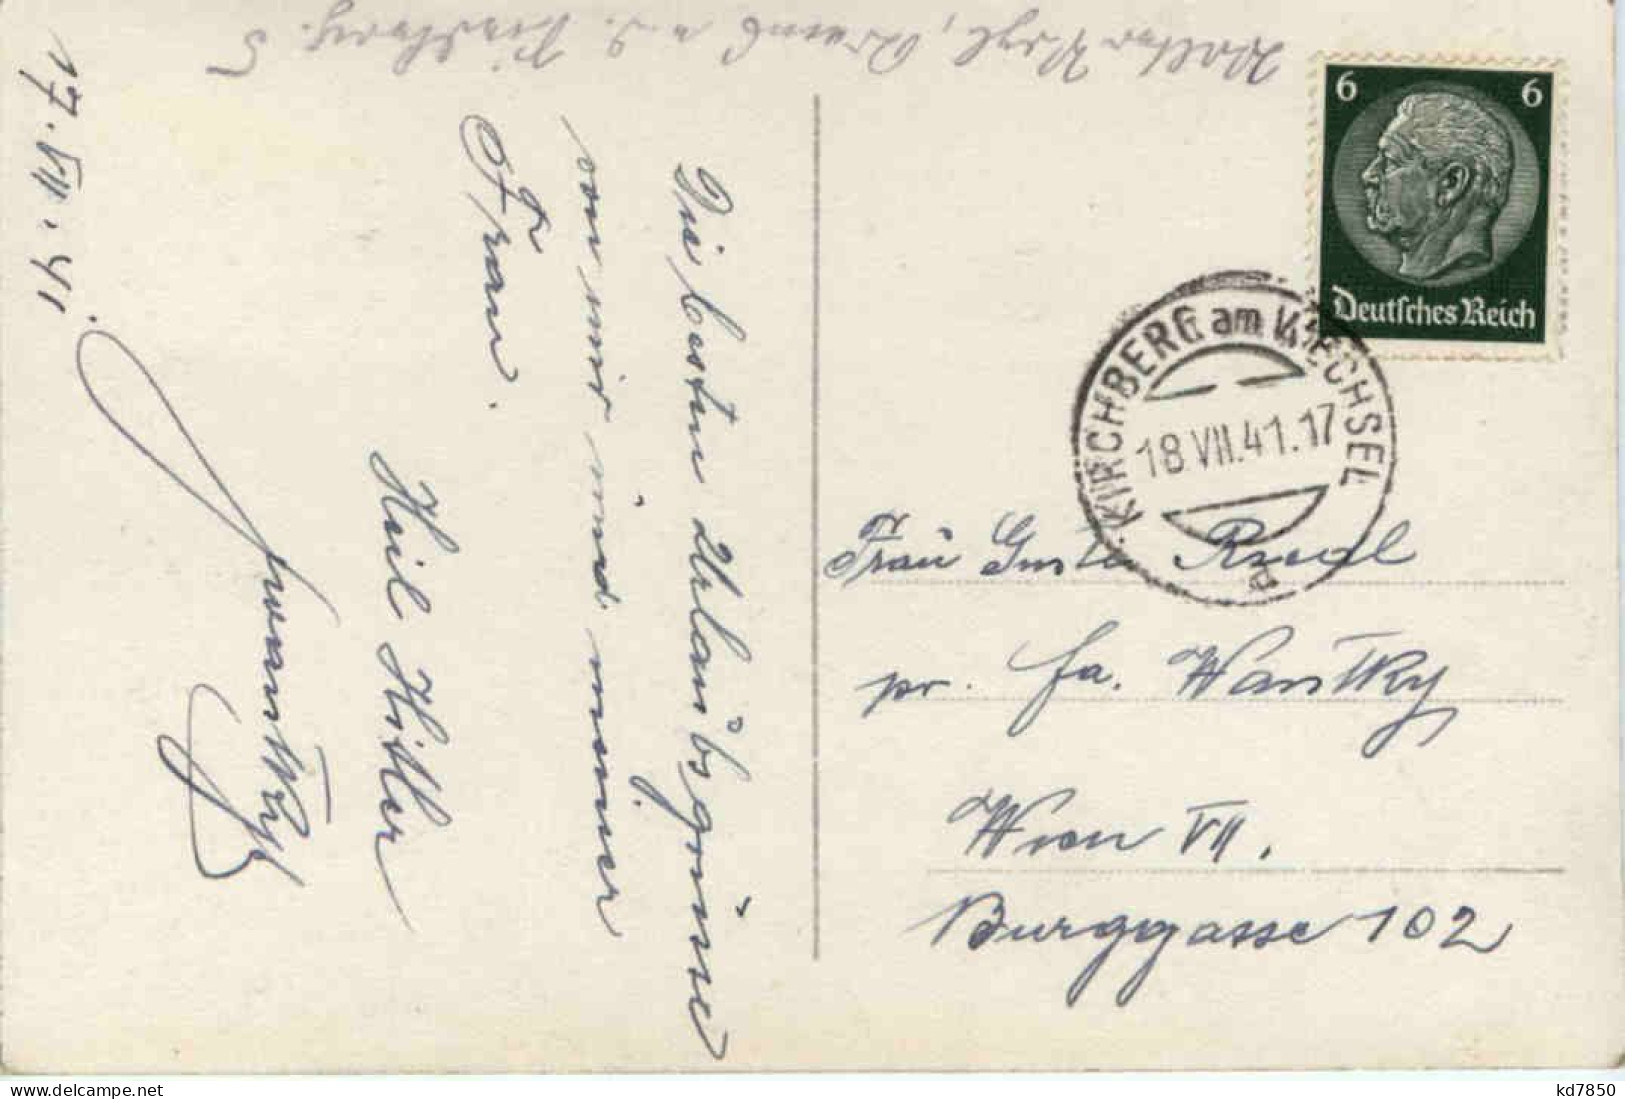 17. VII. 41.
Die besten Urlaubsgrüsse
von mir und meiner
Frau.
Heil Hitler
6 6
Deutsches Reich
KIRCHBERG am WECHSEL
18 VII.41.17
Frau
pr. Fa.
Wien VII.
Burggasse 102
delcampe.net
kd7850